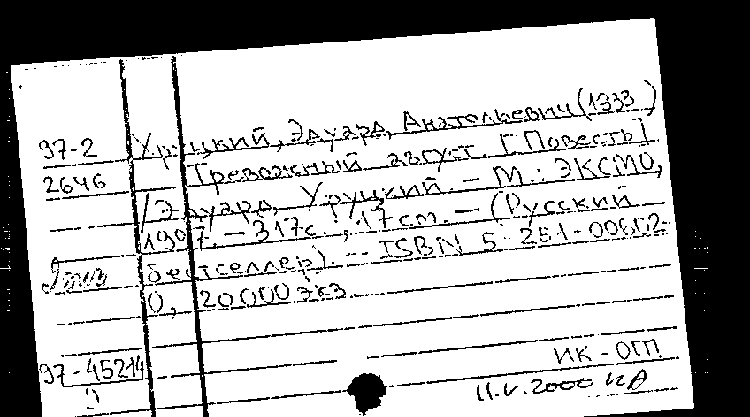 97-2 Хруцкий, Эдуард Анатольевич (1933 )
2646 Тревожный август. [Повесть]
/Эдуард Хруцкий. - М.: ЭКСМО,
1997. - 317с.; 17см. - (Русский
бестселлер). - ISBN 5-251-00602-
0, 20000 экз.
97-45214
ИК-ОГП
11.V.2000